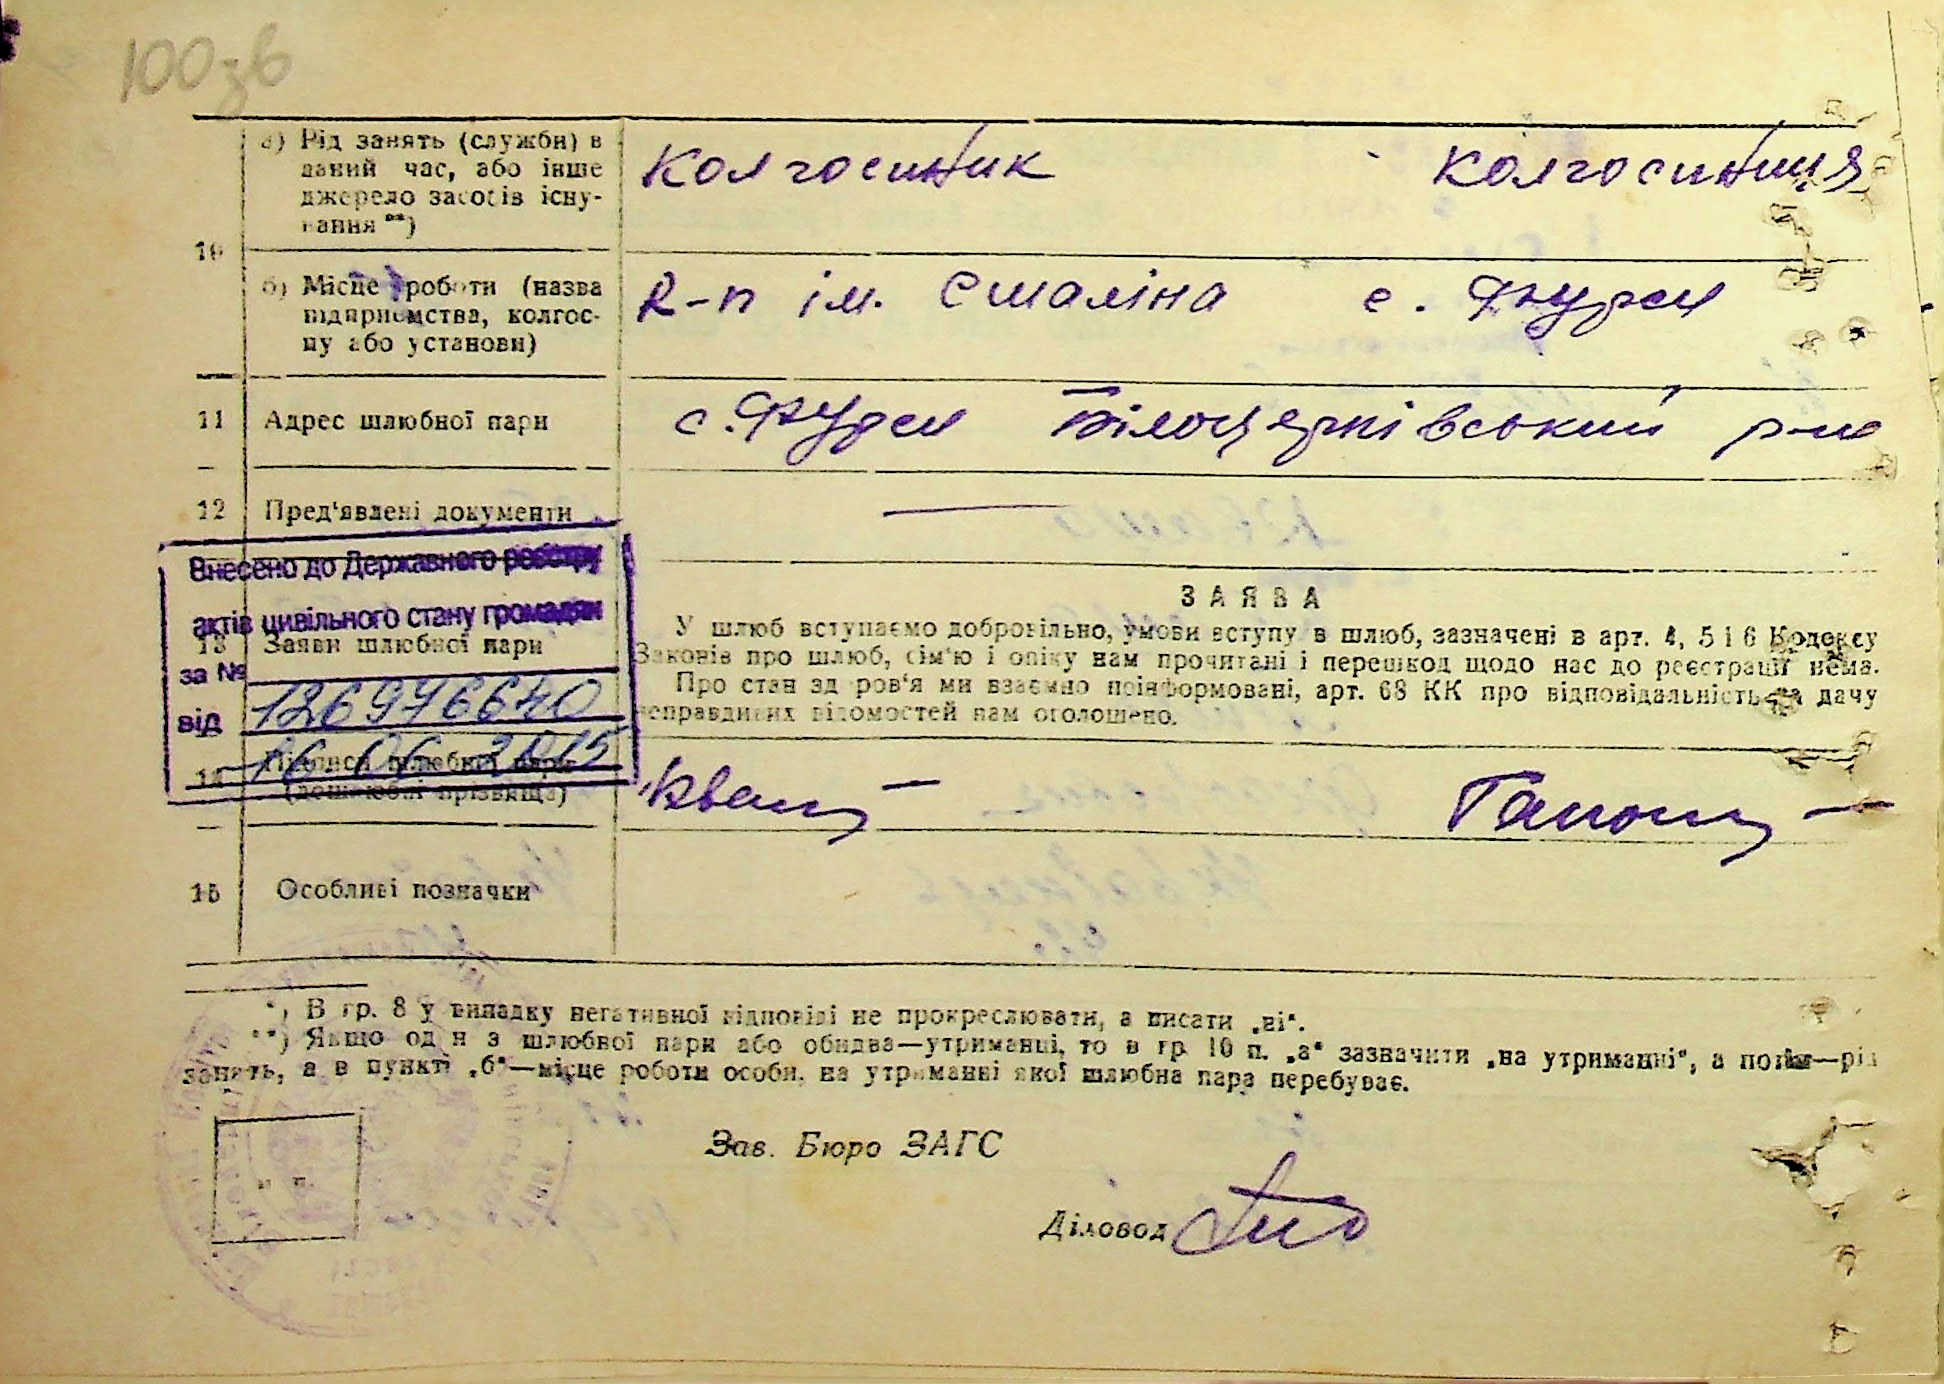 100зв
а) Рід занять (служби) в
даний час, або інше
джерело засобів існу-
вання **)
Колгоспник
Колгоспниця
10
б) Місце роботи (назва
підприємства, колгос-
пу або установи)
К-п ім. Сталіна с. Фурси
11 Адрес шлюбної пари
с. Фурси Білоцерківський р-н
12 Пред'явлені документи
Внесено до Державного реєстру
актів цивільного стану громадян
за №
126976640
від
16 06 2015
13 Заяви шлюбної пари
ЗАЯВА
У шлюб вступаємо добровільно, умови вступу в шлюб, зазначені в арт. 4, 5 і 6 Кодексу
Законів про шлюб, сім'ю і опіку нам прочитані і перешкод щодо нас до реєстрації нема.
Про стан здоров'я ми взаємно поінформовані, арт. 68 КК про відповідальність за дачу
неправдивих відомостей нам оголошено.
14 Підписи шлюбної пари
(дошлюбні прізвища)
15 Особливі позначки
*) В гр. 8 у випадку негативної відповіді не прокреслювати, а писати „ні“.
**) Якщо один з шлюбної пари або обидва—утриманці, то в гр. 10 п. „а“ зазначити „на утриманні“, а потім—рід
занять, а в пункті „б“—місце роботи особи, на утриманні якої шлюбна пара перебуває.
м. п.
Зав. Бюро ЗАГС
Діловод